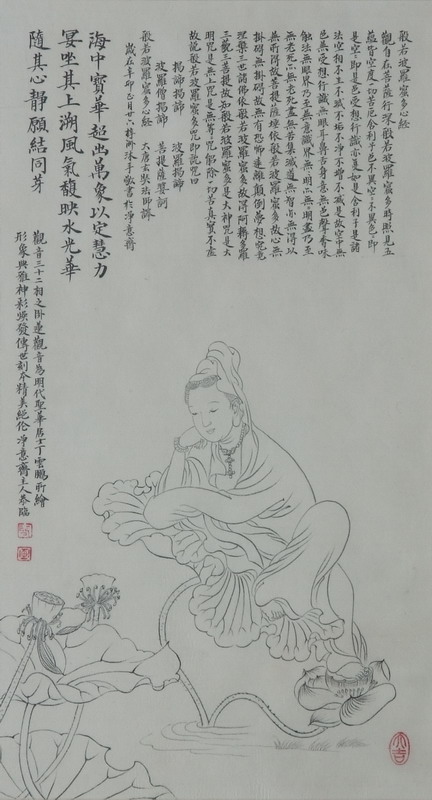 般若波羅蜜多心経
觀自在菩薩行深般若波羅蜜多時照見五
蘊皆空度一切苦厄舍利子色不異空空不異色色即
是空空即是色受想行識亦復如是舍利子是諸
法空相不生不滅不垢不淨不增不減是故空中無
色無受想行識無眼耳鼻舌身意無色聲香味
觸法無眼界乃至無意識界無無明亦無無明盡乃至
無老死亦無老死盡無苦集滅道無智亦無得以
無所得故菩提薩埵依般若波羅蜜多故心無
掛礙無掛礙故無有恐怖遠離顛倒夢想究竟
涅槃三世諸佛依般若波羅蜜多故得阿耨多羅
三藐三菩提故知般若波羅蜜多是大神咒是大
明咒是無上咒是無等等咒能除一切苦真實不虛
故說般若波羅蜜多咒即說咒曰
揭諦揭諦 波羅揭諦
波羅僧揭諦 菩提薩婆訶
般若波羅蜜多心経 大唐玄奘法師譯
歲在辛卯 沐手敬書於净意齋
海中寶華超出萬象以定慧力
宴坐其上溯風氣馥映水光華
隨其心靜願結同芽
觀音三十二相之卧蓮觀音為明代聖華居士丁雲鵬所繪
形象典雅神彩煥發傳世刻本精美絕伦净意齋主人恭臨
大吉